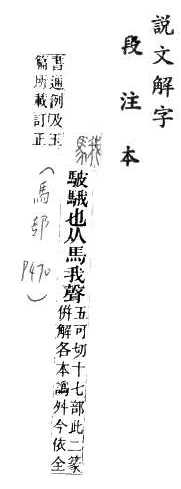 說文解字
段注本
騀
駊騀也从馬我聲
五可切十七部此二篆
倂解各本譌舛今依全
書通例及玉
篇所載訂正
(馬部 P470)